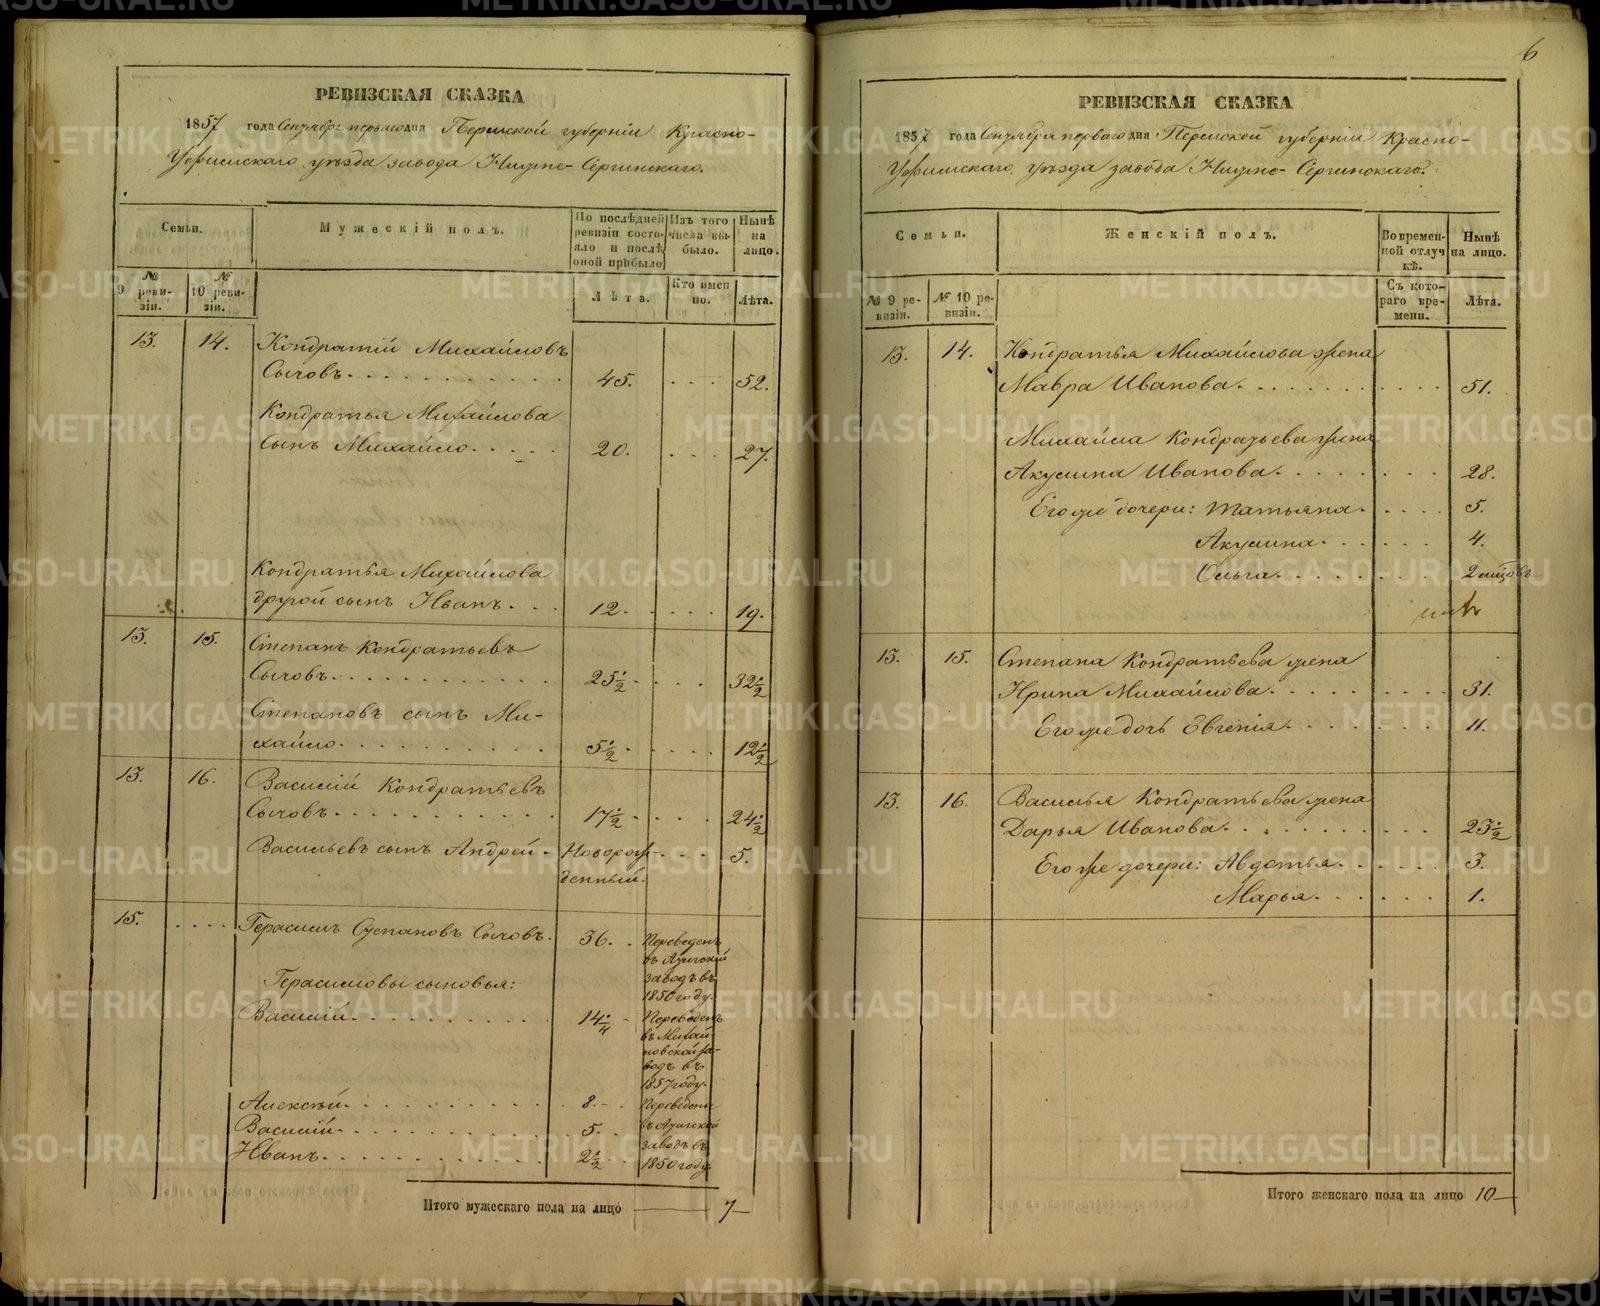 6
РЕВИЗСКАЯ СКАЗКА
1857 года Сентября перваго дня Пермской губернiи Красно-
Уфимскаго уѣзда завода Нижне-Сергинскаго.
Семьи.
Мужескiй полъ.
По послѣдней ревизiи состояло и послѣ оной прибыло
Изъ того числа выбыло.
Нынѣ на лицо.
№ 9 ревизiи.
№ 10 ревизiи.
Лѣта.
Кто именно.
Лѣта.
13. 14. Кондратiй Михайловъ
Сычовъ. 45. 52.
Кондратья Михайлова
сынъ Михайло. 20. 27.
Кондратья Михайлова
другой сынъ Иванъ. 12. 19.
13. 15. Степанъ Кондратьевъ
Сычовъ. 25½ 32½
Степановъ сынъ Ми-
хайло. 5½ 12½
13. 16. Василiй Кондратьевъ
Сычовъ. 17½ 24½
Васильевъ сынъ Андрей. Новорож- 5.
денный.
15. Герасимъ Степановъ Сычовъ. 36. Переведенъ
въ Атигскiй
заводъ въ
1850 году.
Герасимовы сыновья:
Василiй. 14¼ Переведенъ
въ Михай-
ловской за-
водъ въ
1857 году.
Алексѣй. 8. Переведены
Василiй. 5. въ Атигской
заводъ въ
Иванъ. 2½ 1850 году.
Итого мужескаго пола на лицо 7
РЕВИЗСКАЯ СКАЗКА
1857 года Сентября перваго дня Пермской губернiи Красно-
Уфимскаго уѣзда завода Нижне-Сергинскаго.
Семьи.
Женскiй полъ.
Во временной отлучкѣ.
Нынѣ на лицо.
№ 9 ревизiи.
№ 10 ревизiи.
Съ котораго времени.
Лѣта.
13. 14. Кондратья Михайлова жена
Мавра Иванова. 51.
Михайла Кондратьева жена
Акулина Иванова. 28.
Его же дочери: Татьяна. 5.
Акулина. 4.
Ольга. 2 мѣсяцовъ
13. 15. Степана Кондратьева жена
Ирина Михайлова. 31.
Его же дочь Евгенiя. 11.
13. 16. Василья Кондратьева жена
Дарья Иванова. 23½
Его же дочери: Авдотья. 3.
Марья. 1.
Итого женскаго пола на лицо 10
METRIKI.GASO-URAL.RU